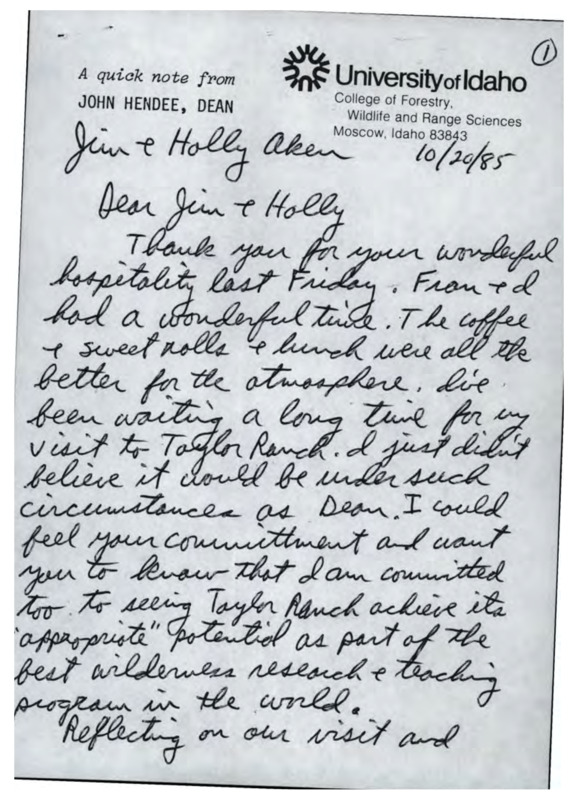 ①
A quick note from
JOHN HENDEE, DEAN
University of Idaho
College of Forestry,
Wildlife and Range Sciences
Moscow, Idaho 83843
Jim & Holly Aken
10/20/85
Dear Jim & Holly
Thank you for your wonderful
hospitality last Friday. Fran & I
had a wonderful time. The coffee
& sweet rolls & lunch were all the
better for the atmosphere. I've
been waiting a long time for my
visit to Taylor Ranch. I just didn't
believe it would be under such
circumstances as Dean. I could
feel your committment and want
you to know that I am committed
too to seeing Taylor Ranch achieve its
"appropriate" potential as part of the
best wilderness research & teaching
program in the world.
Reflecting on our visit and